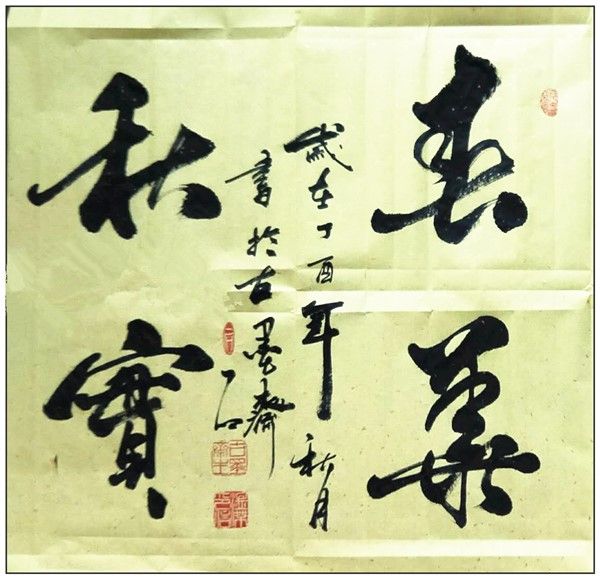 春華
秋實
歲在丁酉年秋月
書於古墨齋
一石